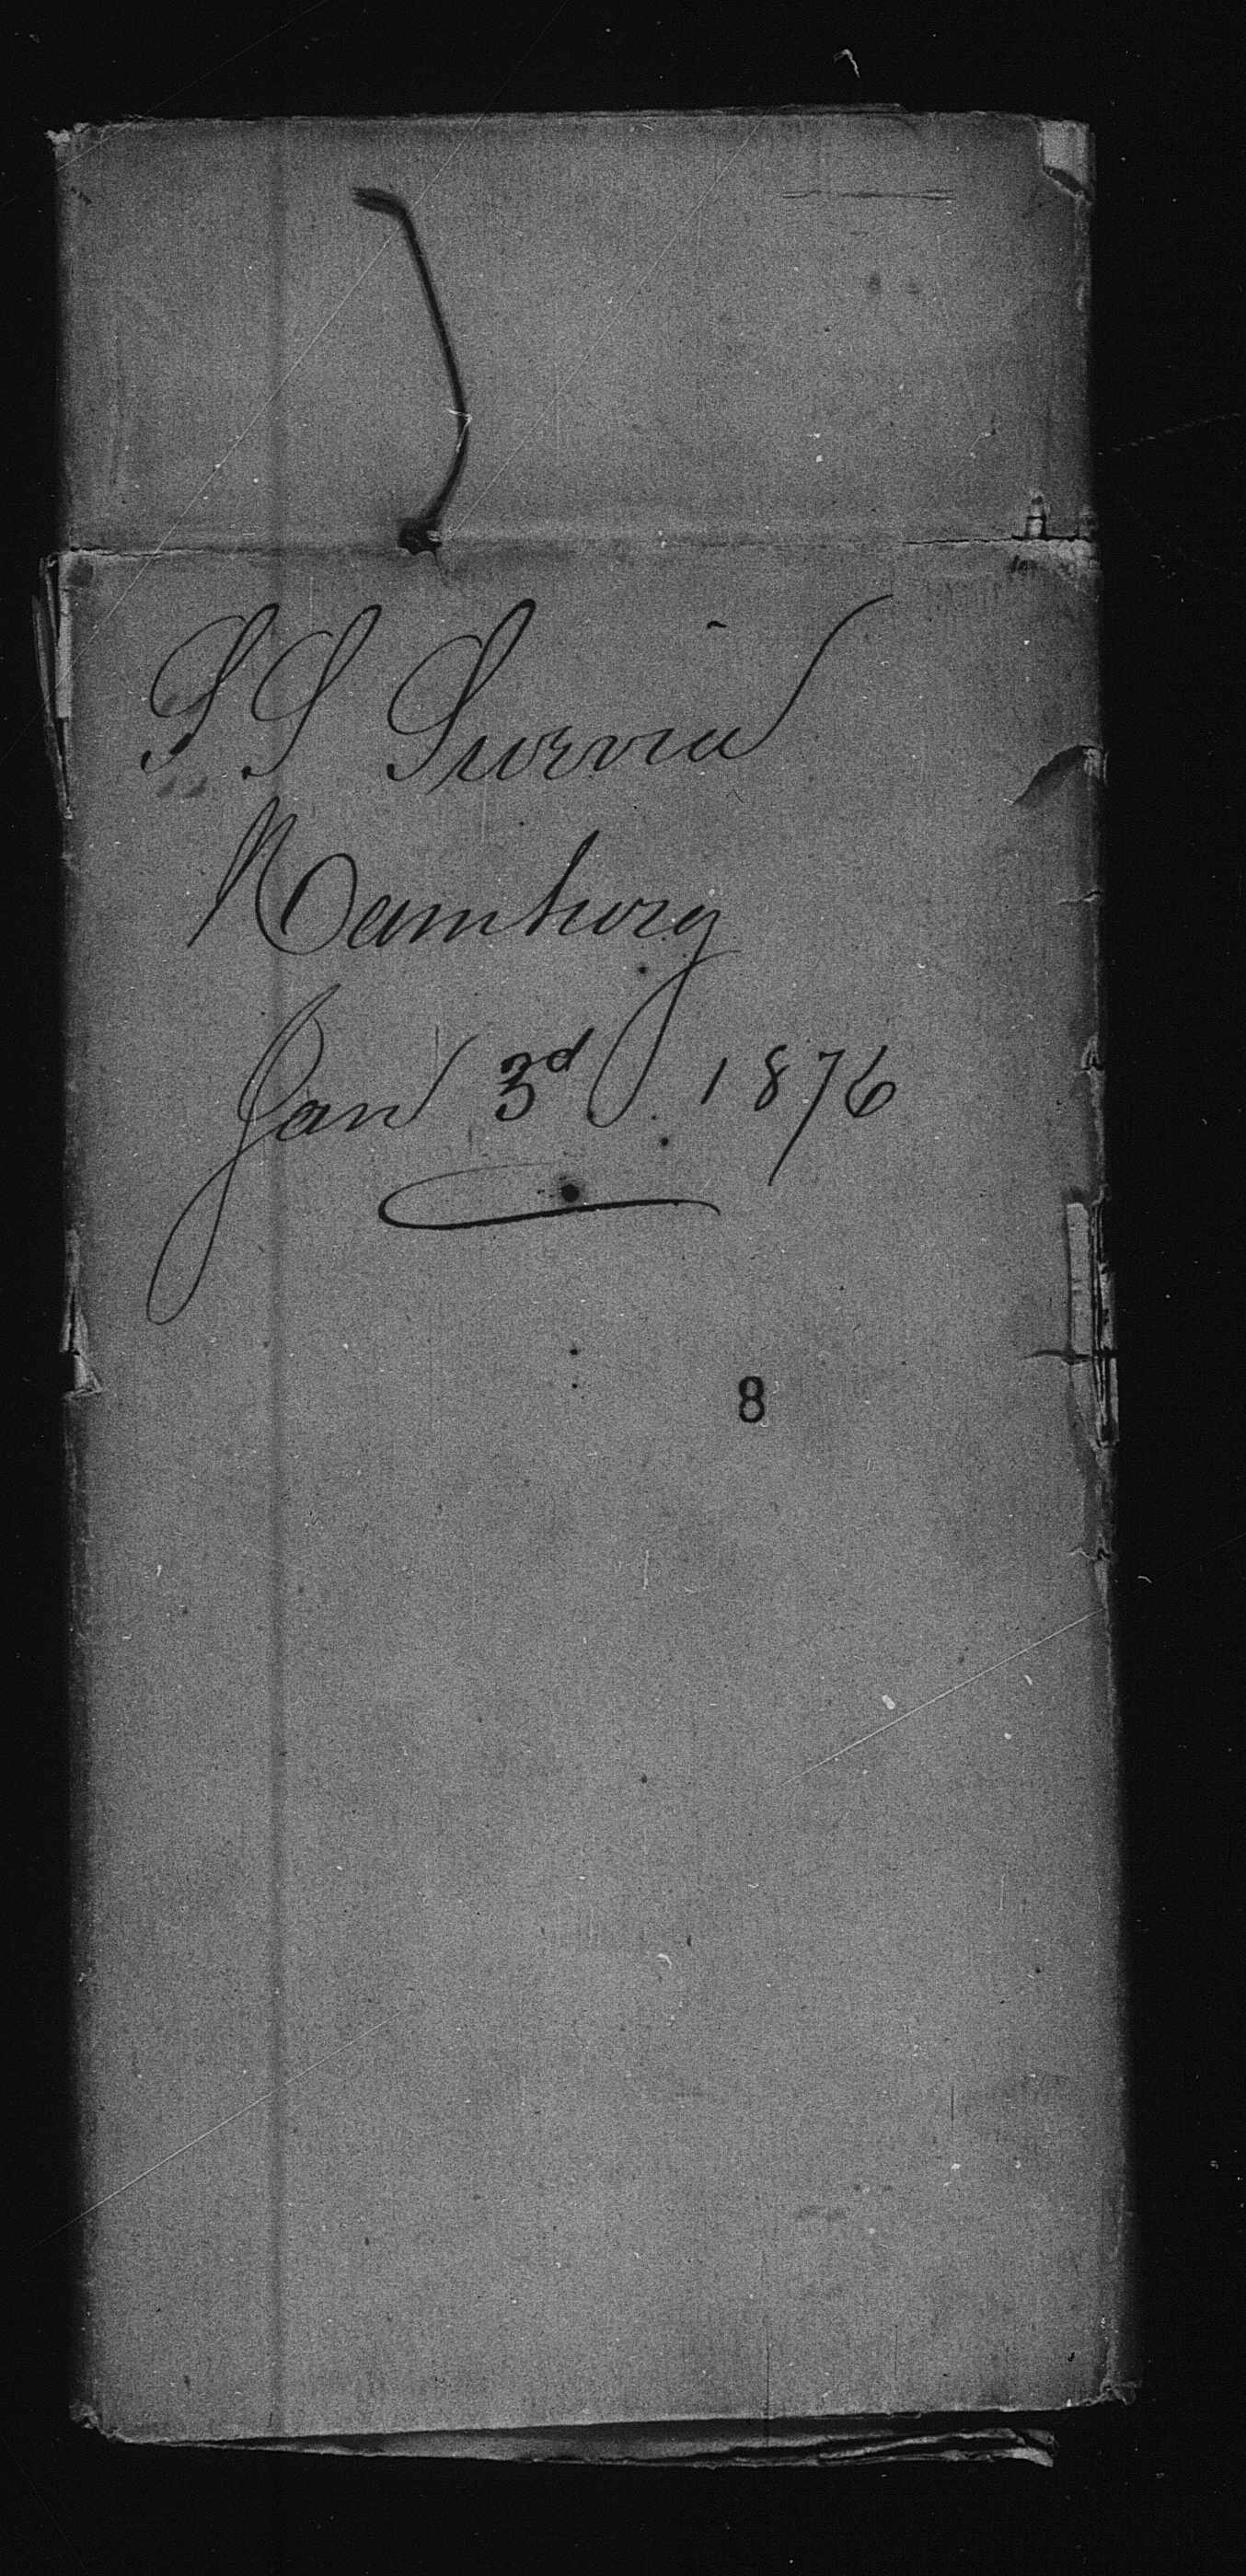 SS Suevia
Hamburg
Jan 3d 1876
8